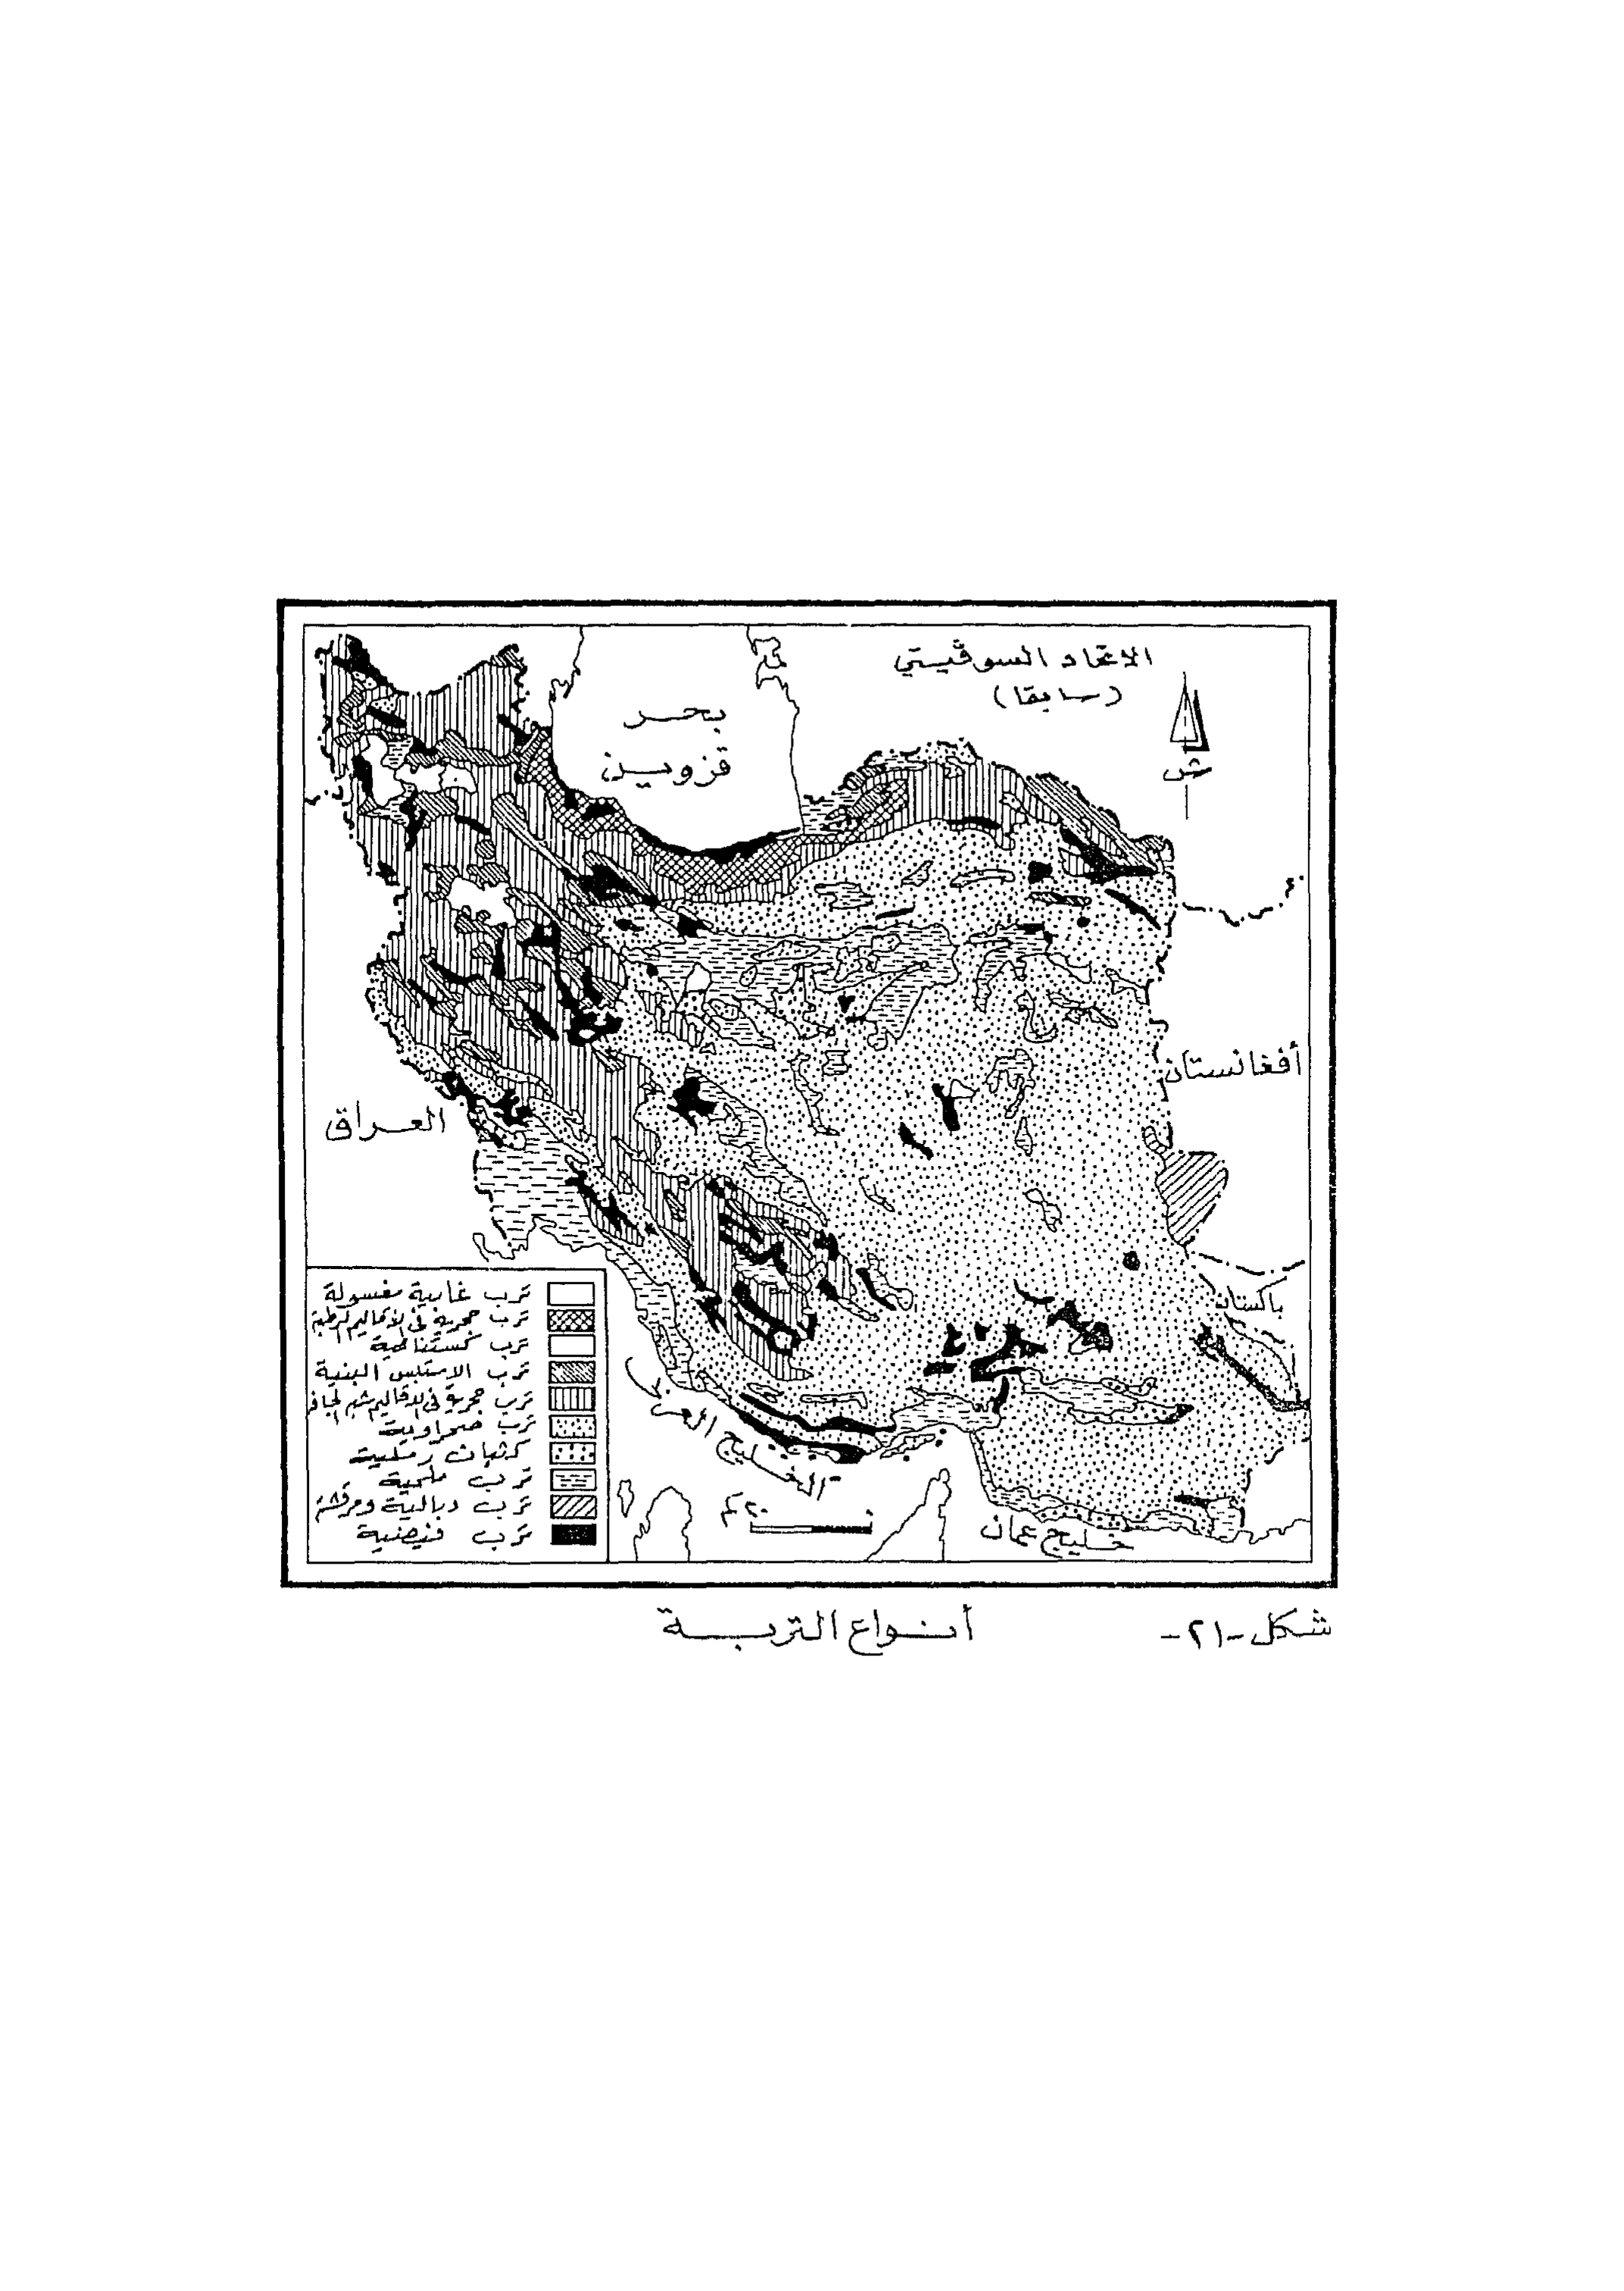 الاتحاد السوڤيتي
(سابقا)
بحر
قزوين
ش
أفغانستان
العراق
باكستان
الخليج العربي
خليج عمان
٢٠٠ كم
ترب غابية مغسولة
ترب حجرية في الأقاليم الرطبة
ترب كستنائية
ترب الاستبس البنية
ترب حجرية في الاقاليم شبه الجافة
ترب صحراوية
كثبان رملية
ترب ملحية
ترب دبالية و
ترب فيضية
شكل -٢١- أنواع التربة